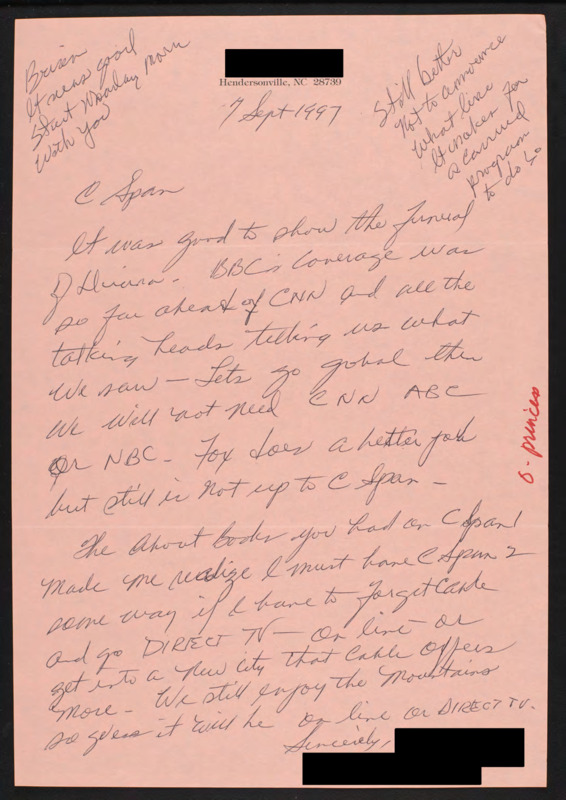 Brian
It seems good
Start Monday morn
With you
Hendersonville, NC 28739
7 Sept 1997
Still better
Not to announce
What line
It makes for
a carried
program
to do so
C Span
It was good to show the funeral
of Diana - BBC's Coverage was
so far ahead of CNN and all the
talking heads telling us what
We saw - Lets go global then
We will not need CNN ABC
Or NBC - Fox does a better job
but still is Not up to C Span -
6 - princess
The About Books you had on C Span 1
Made me realize I must have C Span 2
some way if I have to forget Cable
and go DIRECT TV - On line - or
get into a New City that Cable offers
More - We still enjoy the Mountains
so guess it will be on line or DIRECT TV.
Sincerely,